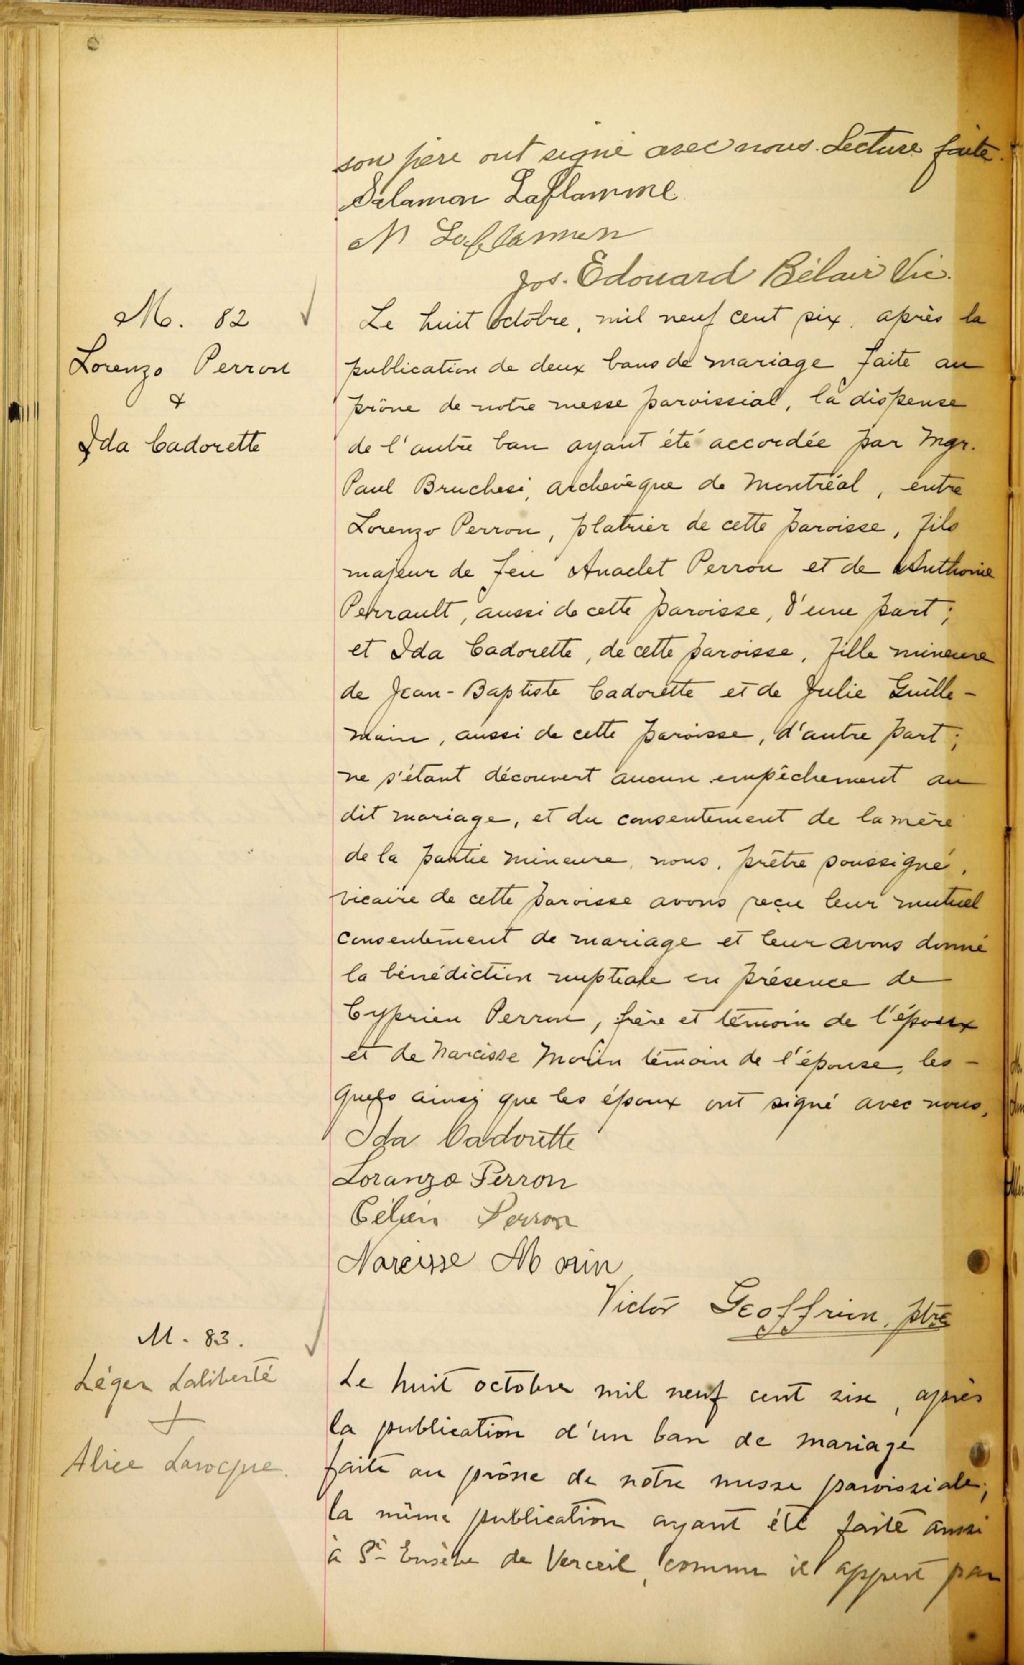 son père ont signé avec nous. Lecture faite.
Salamon Laflamme
M Laflammen
Jos. Edouard Bélair Vic.
M. 82
Lorenzo Perron
&
Ida Cadorette
Le huit octobre, mil neuf cent six, après la
publication de deux bans de mariage faite au
prône de notre messe paroissial, la dispense
de l'autre ban ayant été accordée par Mgr.
Paul Bruchesi, archevêque de Montréal, entre
Lorenzo Perron, platrier de cette paroisse, fils
majeur de feu Anaclet Perron et de
Perrault, aussi de cette paroisse, d'une part;
et Ida Cadorette, de cette paroisse, fille mineure
de Jean-Baptiste Cadorette et de Julie Guille-
main, aussi de cette paroisse, d'autre part;
ne s'étant découvert aucun empêchement au
dit mariage, et du consentement de la mère
de la partie mineure, nous, prêtre soussigné,
vicaire de cette paroisse avons reçu leur mutuel
consentement de mariage et leur avons donné
la bénédiction nuptiale en présence de
Cyprien Perron, frère et témoin de l'époux
et de Narcisse Morin témoin de l'épouse, les-
quels ainsi que les époux ont signé avec nous.
Ida Cadorette
Loranzo Perron
Perron
Narcisse Morin
Victor Geoffrion, ptre
M. 83.
Léger Laliberté
+
Alice Larocque.
Le huit octobre mil neuf cent six, après
la publication d'un ban de mariage
faite au prône de notre messe paroissiale,
la même publication ayant été faite aussi
à St Eusèbe de Verceil, comme il appert par